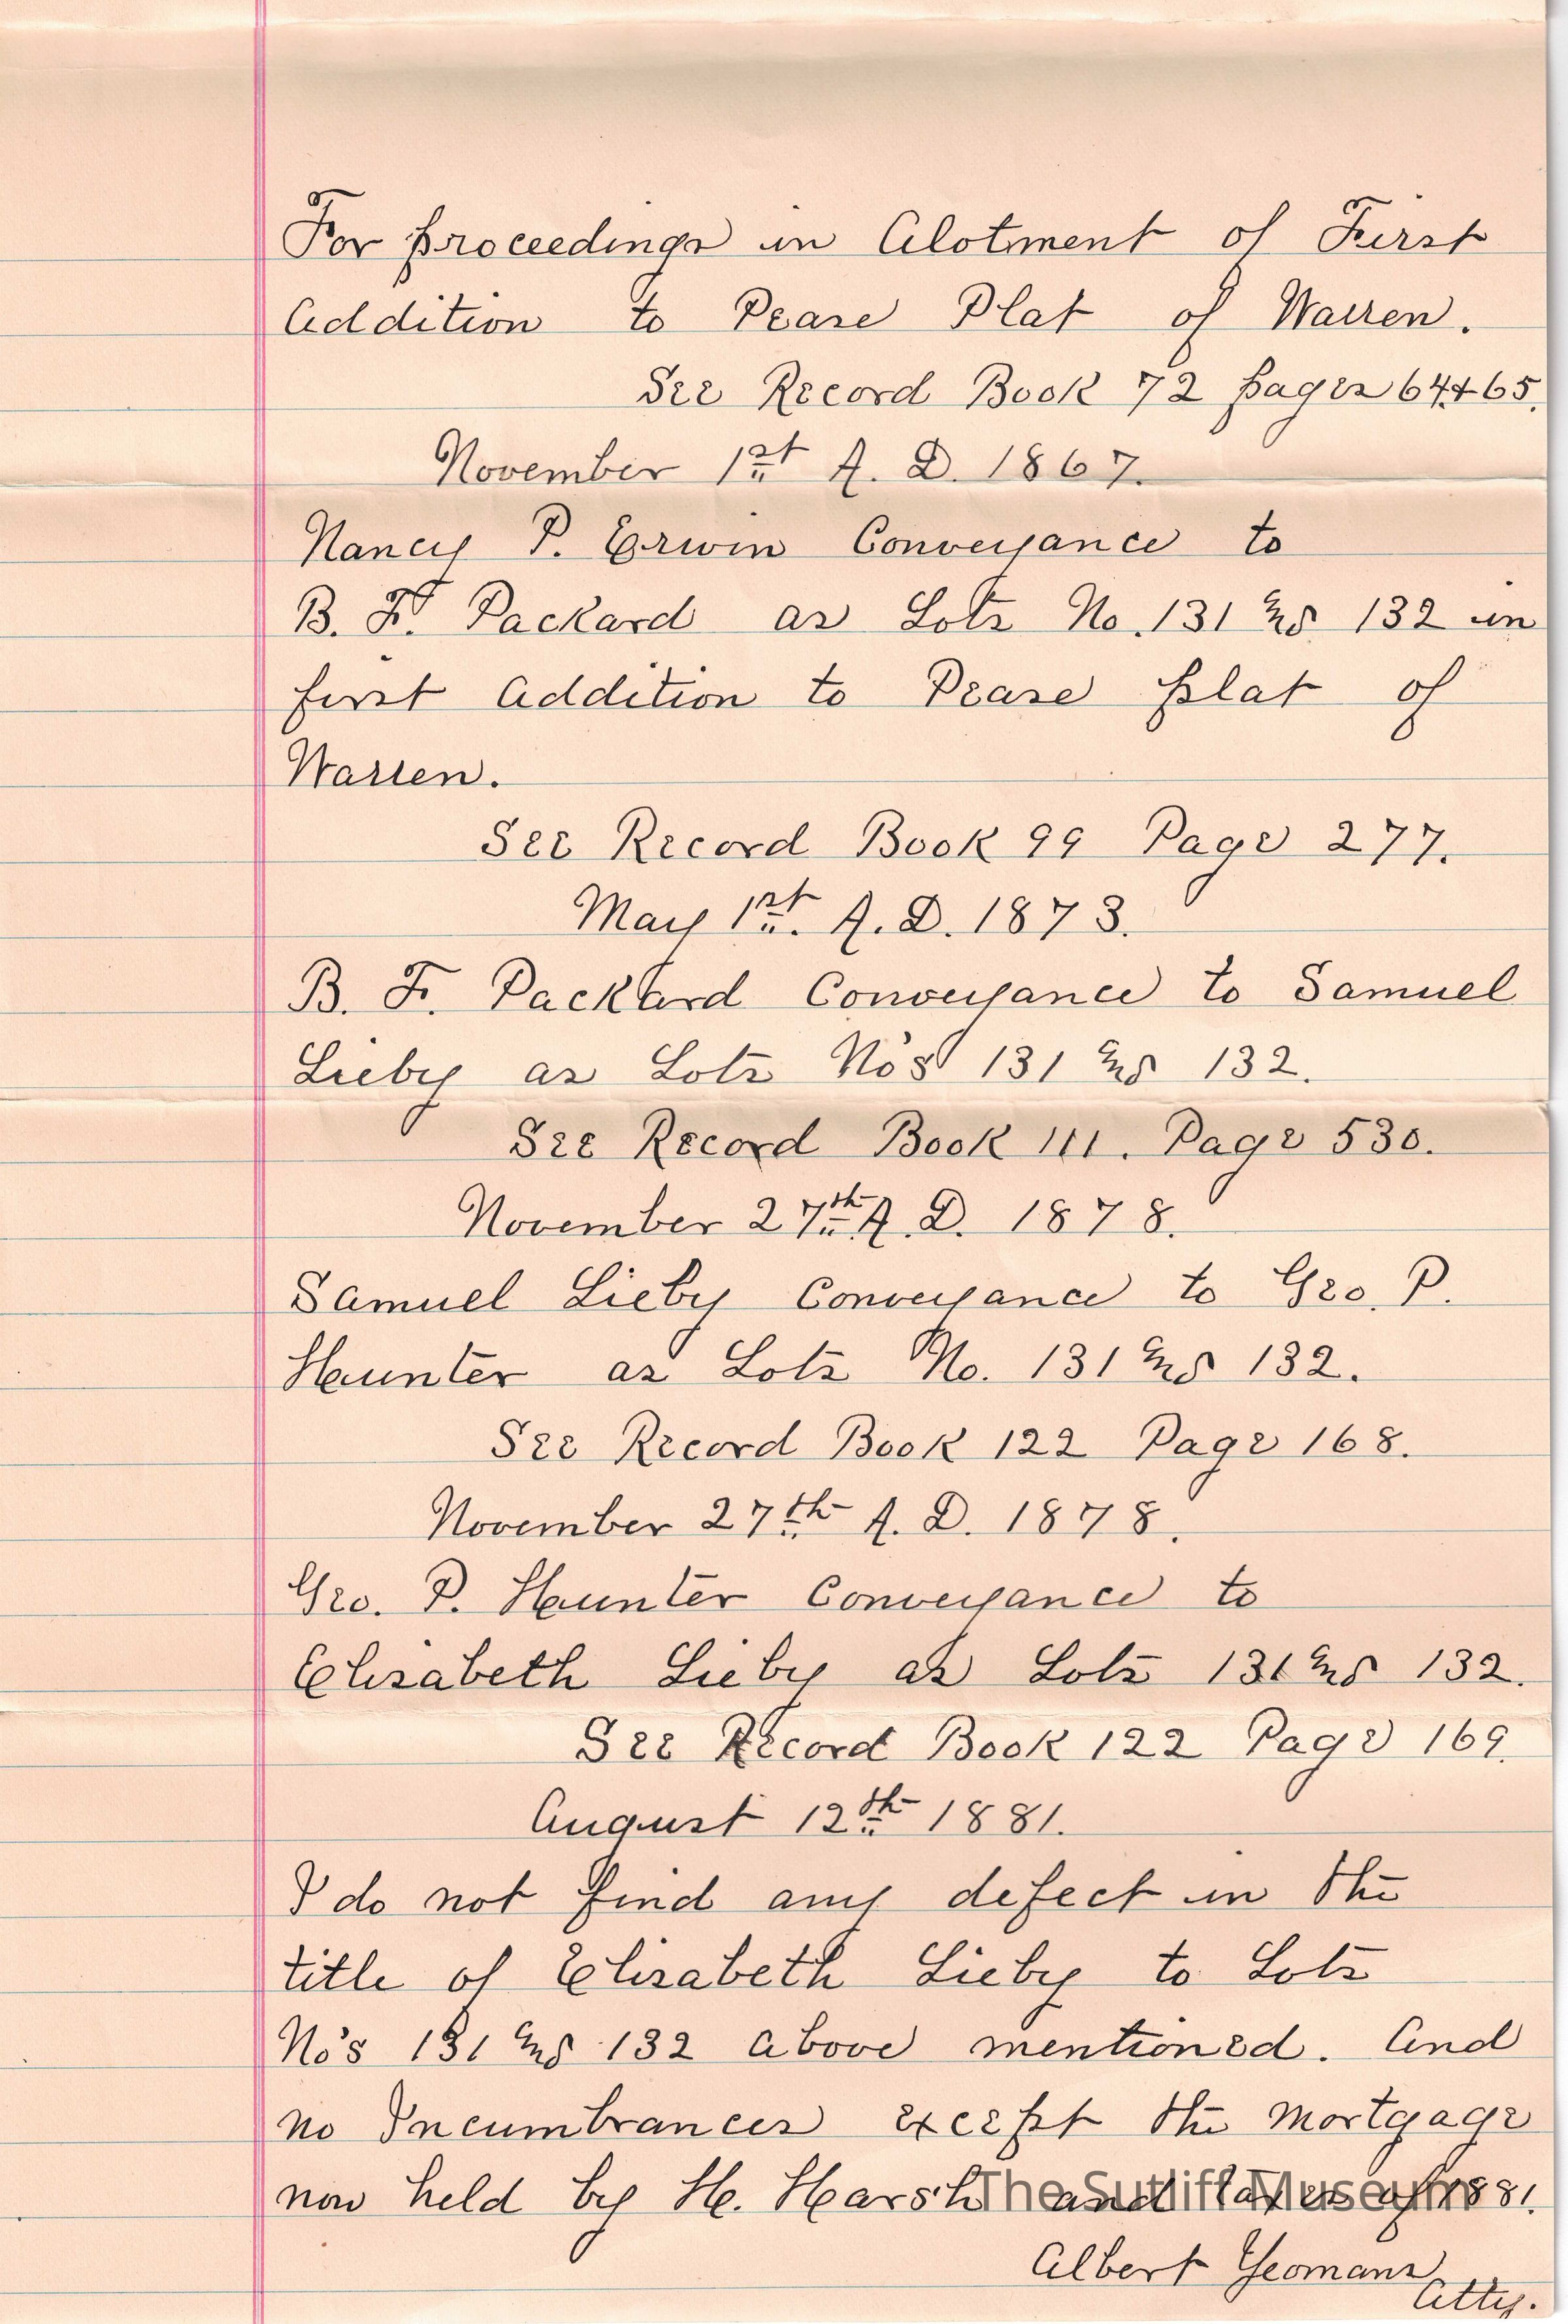 For proceedings in Alotment of First
Addition to Pease Plat of Warren.
See Record Book 72 pages 64+65.
November 1st A. D. 1867.
Nancy P. Erwin Conveyance to
B. F. Packard as Lots No. 131 and 132 in
first Addition to Pease plat of
Warren.
See Record Book 99 Page 277.
May 1st. A. D. 1873.
B. F. Packard Conveyance to Samuel
Lieby as Lots No's 131 and 132.
See Record Book 111. Page 530.
November 27th A. D. 1878.
Samuel Lieby Conveyance to Geo. P.
Hunter as Lots No. 131 and 132.
See Record Book 122 Page 168.
November 27th A. D. 1878.
Geo. P. Hunter Conveyance to
Elisabeth Lieby as Lots 131 and 132.
See Record Book 122 Page 169.
August 12th 1881.
I do not find any defect in the
title of Elisabeth Lieby to Lots
No's 131 and 132 above mentioned. And
no Incumbrances except the mortgage
now held by H. Harsh and taxes of 1881.
The Sutliff Museum
Albert Yeomans
Atty.